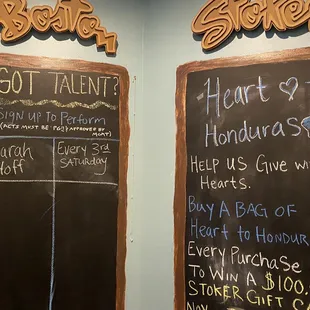 Boston
GOT TALENT?
SIGN UP TO PERFORM
(ACTS MUST BE PG & APPROVED BY
MGMT)
Every 3rd
SATURDAY
Stoker
Heart
Honduras
HELP US GIVE
Hearts.
BUY A BAG OF
Heart to HONDUR
Every Purchase
TO WIN A $100
STOKER GIFT
Nov